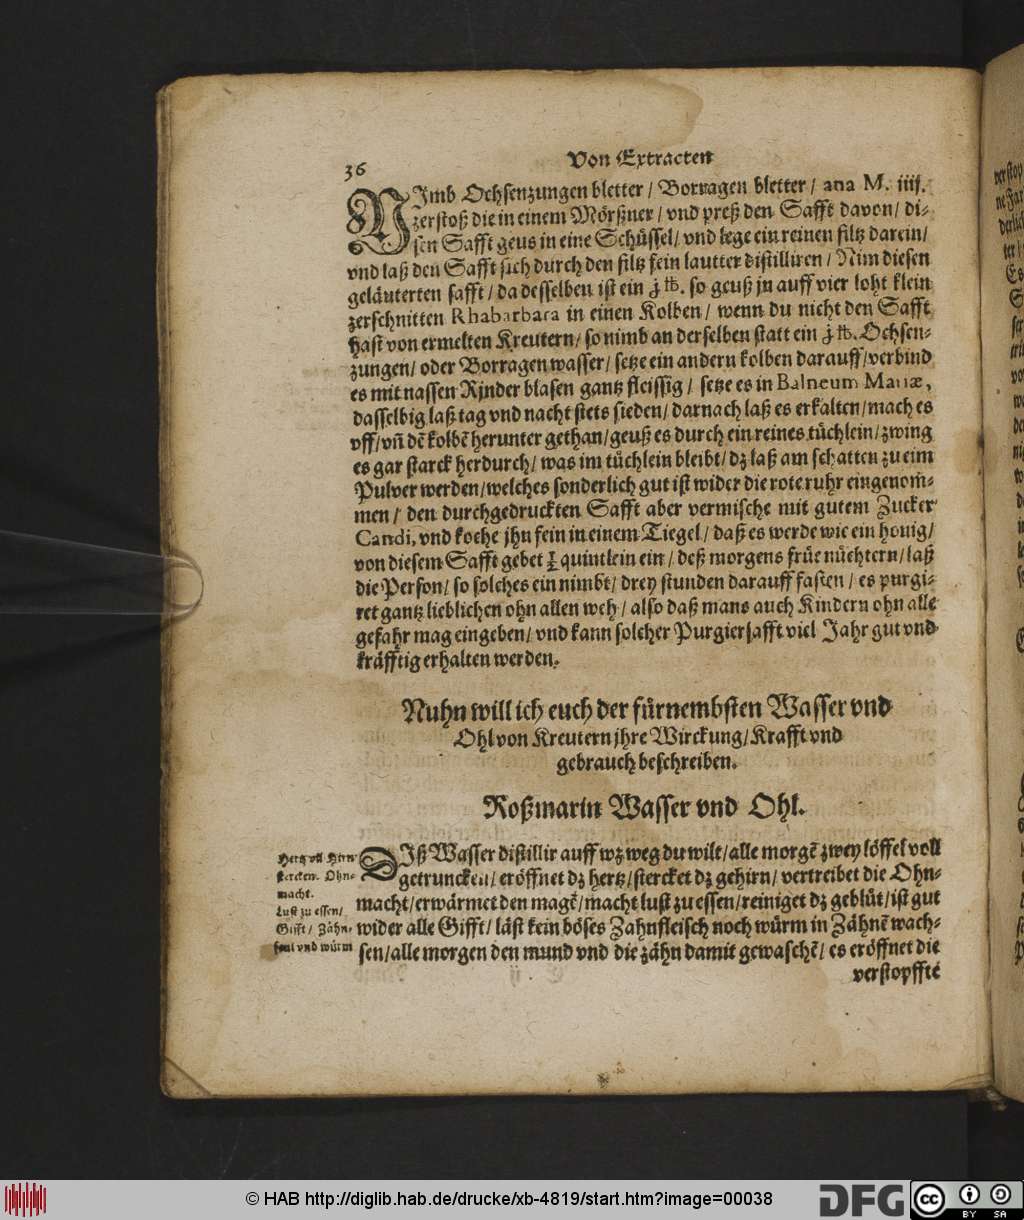 36
Von Extracten
NImb Ochsenzungen bletter / Borragen bletter / ana M. iiij.
zerstoß die in einem Mörßner / vnd preß den Safft davon / di-
sen Safft geus in eine Schüssel / vnd lege ein reinen filtz darein /
vnd laß den Safft sich durch den filtz fein lautter distilliren / Nim diesen
geläuterten safft / da desselben ist ein j ℔. so geuß jn auff vier loht klein
zerschnitten Rhabarbara in einen Kolben / wenn du nicht den Safft
hast von ermelten Kreutern / so nimb an derselben statt ein j ℔. Ochsen-
zungen / oder Borragen wasser / setze ein andern kolben darauff / verbind
es mit nassen Rinder blasen gantz fleissig / setze es in Balneum Mariæ,
dasselbig laß tag vnd nacht stets sieden / darnach laß es erkalten / mach es
vff / vñ dẽ kolbẽ herunter gethan / geuß es durch ein reines tüchlein / zwing
es gar starck herdurch / was im tüchlein bleibt / dz laß am schatten zu eim
Pulver werden / welches sonderlich gut ist wider die rote ruhr eingenom̃-
men / den durchgedruckten Safft aber vermische mit gutem Zucker
Candi, vnd koche jhn fein in einem Tiegel / daß es werde wie ein honig /
von diesem Safft gebet ½ quintlein ein / deß morgens früe nüchtern / laß
die Person / so solches einnimbt / drey stunden darauff fasten / es purgi-
ret gantz lieblichen ohn allen weh / also daß mans auch Kindern ohn alle
gefahr mag eingeben / vnd kann solcher Purgiersafft viel Jahr gut vnd
kräfftig erhalten werden.
Nuhn will ich euch der fürnembsten Wasser vnd
Ohl von Kreutern jhre Wirckung / Krafft vnd
gebrauch beschreiben.
Roßmarin Wasser vnd Ohl.
Hertz vñ Hirn
stercken. Ohn-
macht.
Lust zu essen /
Gifft / Zähn-
feul vnd würm
DIß Wasser distillir auff wz weg du wilt / alle morgẽ zwey löffel voll
getruncken / eröffnet dz hertz / stercket dz gehirn / vertreibet die Ohn-
macht / erwärmet den magẽ / macht lust zu essen / reiniget dz geblüt / ist gut
wider alle Gifft / läst kein böses Zahnfleisch noch würm in Zähnẽ wach-
sen / alle morgen den mund vnd die zähn damit gewaschẽ / es eröffnet die
verstopfftẽ
© HAB http://diglib.hab.de/drucke/xb-4819/start.htm?image=00038
DFG
cc
BY SA